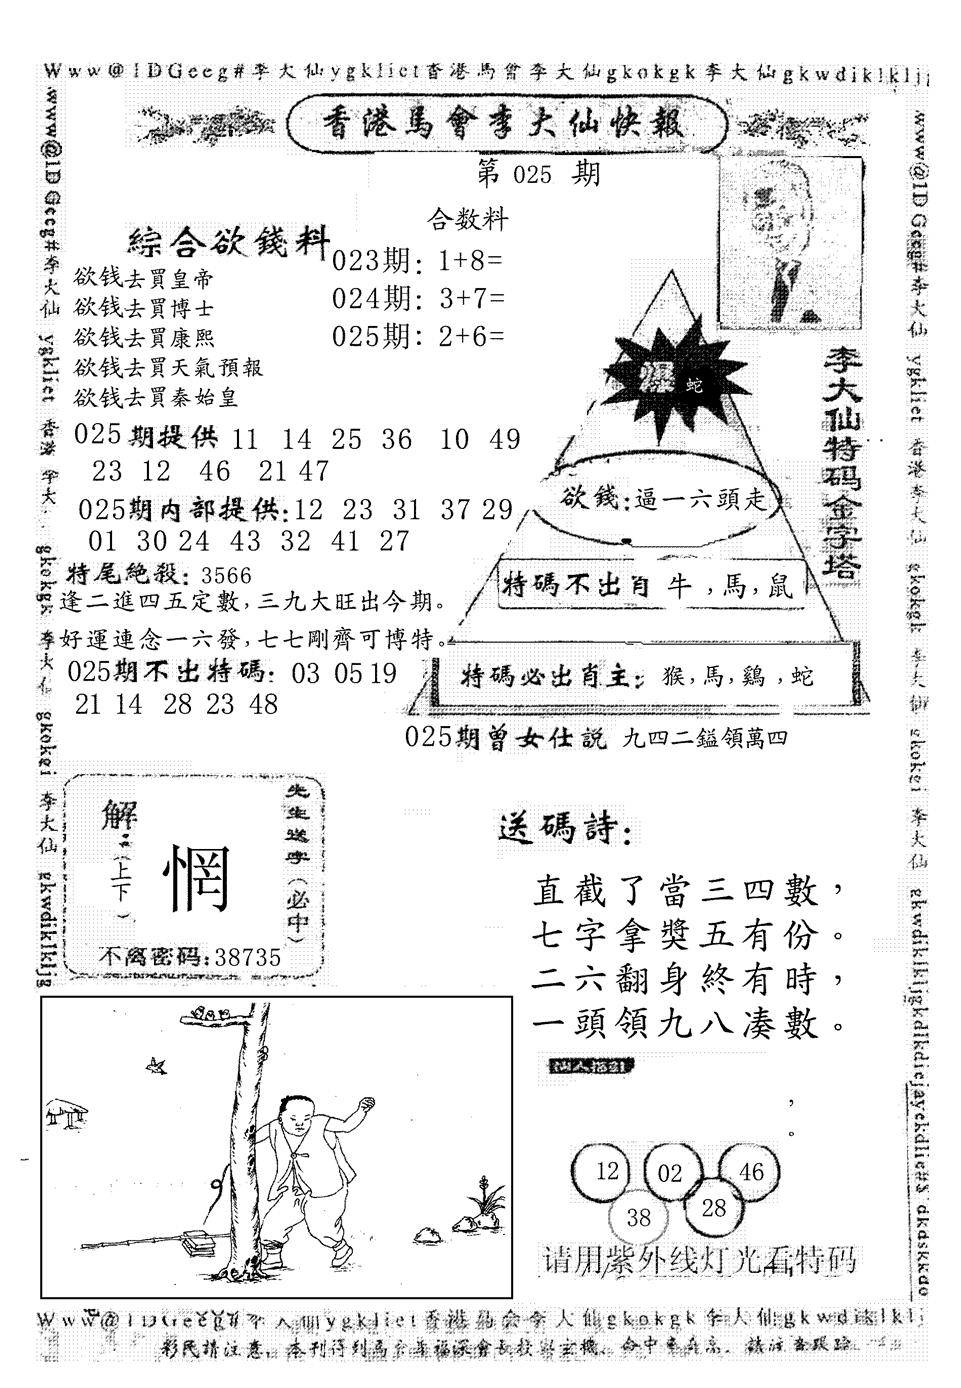 Www@1DGeeg#李大仙ygkliet香港馬會李大仙gkokgk李大仙gkwdiklkljg
香港馬會李大仙快報
第 025 期
合数料
綜合欲錢料
023期: 1+8=
024期: 3+7=
025期: 2+6=
欲钱去買皇帝
欲钱去買博士
欲钱去買康熙
欲钱去買天氣預報
欲钱去買秦始皇
025期提供 11 14 25 36 10 49
23 12 46 21 47
025期内部提供:12 23 31 37 29
01 30 24 43 32 41 27
特尾絶殺: 3566
逢二進四五定數,三九大旺出今期。
好運連念一六發,七七剛齊可博特。
025期不出特碼: 03 05 19
21 14 28 23 48
爆 蛇
欲錢:逼一六頭走
特碼不出肖 牛,馬,鼠
特碼必出肖主: 猴,馬,鷄,蛇
李大仙特码金字塔
025期曾女仕説 九四二鎰領萬四
先生送字(必中)
解:(上下)
惘
不离密码:38735
送碼詩:
直截了當三四數,
七字拿獎五有份。
二六翻身終有時,
一頭領九八凑數。
,
。
12 02 46
38 28
请用紫外线灯光看特码
www@1DGeeg#李大仙 ygkliet 香港 李大 gkokgk 李大仙 gkokei 李大仙 gkwdiklkljg
www@1DGeeg#李大仙 ygkliet 香港李大仙 gkokgk 李大仙 gkokei 李大仙 gkwdiklkljgkdlkdiejayekdlie#$ dkdskkdo
Www@1DGeeg#李大仙ygkliet香港馬会李大仙gkokgk李大仙gkwdiklklj
彩民請注意,本刊得到馬会